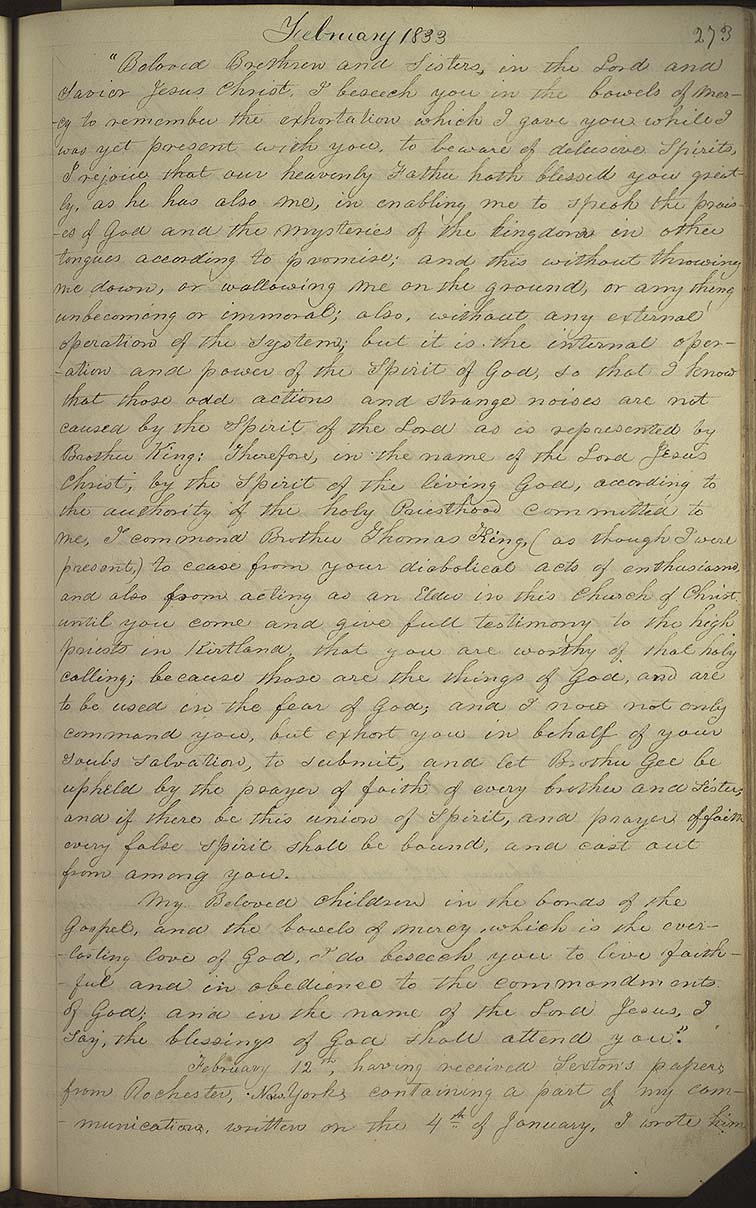 February 1833 273
"Beloved Brethren and Sisters, in the Lord and
Savior Jesus Christ. I beseech you in the bowels of mer-
-cy to remember the exhortation which I gave you while I
was yet present with you, to beware of delusive Spirits.
I rejoice that our heavenly Father hath blessed you great-
ly, as he has also me, in enabling me to speak the prais-
-es of God and the mysteries of the kingdom in other
tongues according to promise; and this without throwing
me down, or wallowing me on the ground, or any thing
unbecoming or immoral; also, without any external
operation of the system; but it is the internal oper-
-ation and power of the Spirit of God, so that I know
that those odd actions and strange noises are not
caused by the Spirit of the Lord as is represented by
Brother King: Therefore, in the name of the Lord Jesus
Christ, by the Spirit of the living God, according to
the authority of the holy Priesthood committed to
me, I command Brother Thomas King, (as though I were
present,) to cease from your diabolical acts of enthusiasm,
and also from acting as an Elder in this Church of Christ
until you come and give full testimony to the high
priests in Kirtland, that you are worthy of that holy
calling; because those are the things of God, and are
to be used in the fear of God; and I now not only
command you, but exhort you in behalf of your
soul's salvation, to submit, and let Brother Gee be
upheld by the prayer of faith of every brother and sister;
and if there be this union of Spirit, and prayer of faith
every false spirit shall be bound, and cast out
from among you.
My Beloved children in the bonds of the
Gospel, and the bowels of mercy, which is the ever-
-lasting love of God, I do beseech you to live faith-
-ful and in obedience to the commandments
of God; and in the name of the Lord Jesus, I
say, the blessings of God shall attend you."
February 12th, having received Sexton's paper,
from Rochester, New York, containing a part of my com-
-munication, written on the 4th of January, I wrote him